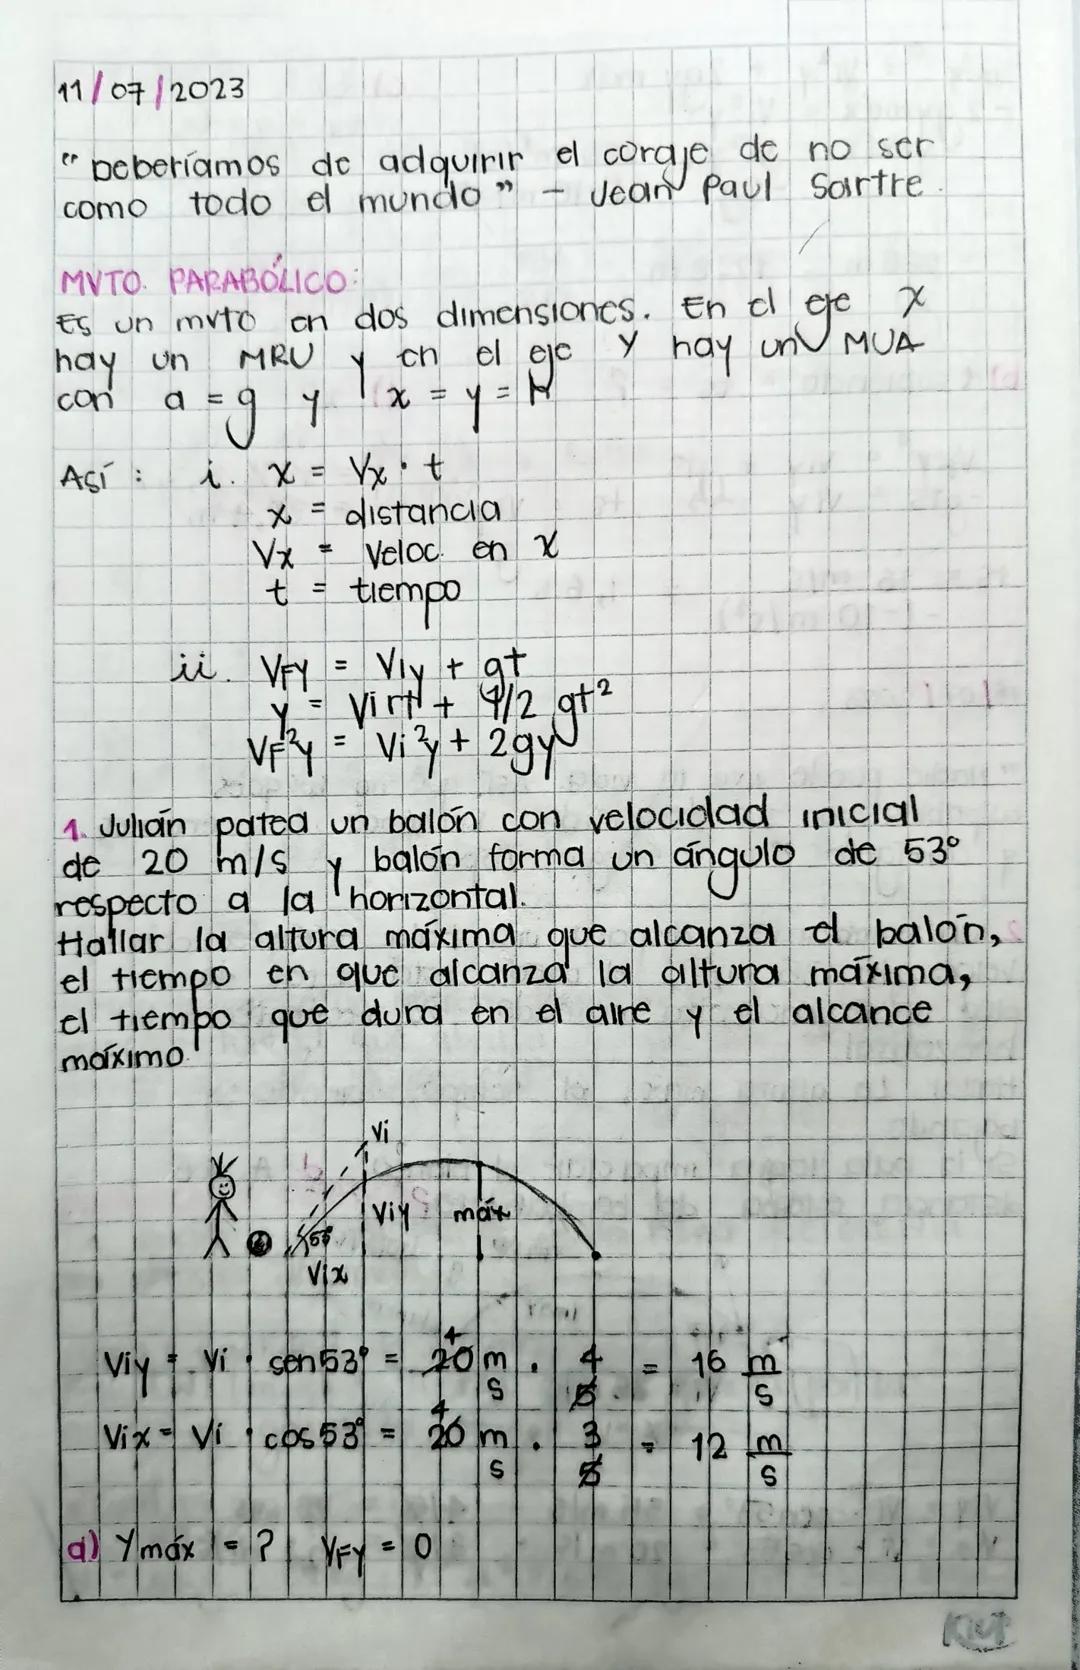 11/07/2023
" Deberíamos de adquirir el coraje de no ser
como todo el mundo" - Jean Paul Sartre.
MVTO. PARABÓLICO:
Es un mvto en dos dimensiones. En el eje x
hay un MRU y en el eje y hay un MUA
con a = g y x = y = M
Así: i. x = Vx · t
x = distancia
Vx = Veloc. en x
t = tiempo
ii. VFY = Viy + gt
y = Viyt + 1/2 gt²
VF²y = Vi²y + 2gy
1. Julián patea un balón con velocidad inicial
de 20 m/s y balón forma un ángulo de 53°
respecto a la horizontal.
Hallar la altura máxima que alcanza el balón,
el tiempo en que alcanza la altura máxima,
el tiempo que dura en el aire y el alcance
máximo.
Vi
Viy máx
53°
Vix
Viy = Vi · sen53° = 20 m/s · 4/5 = 16 m/s
Vix = Vi · cos53° = 20 m/s · 3/5 = 12 m/s
a) Ymáx = ? VFY = 0